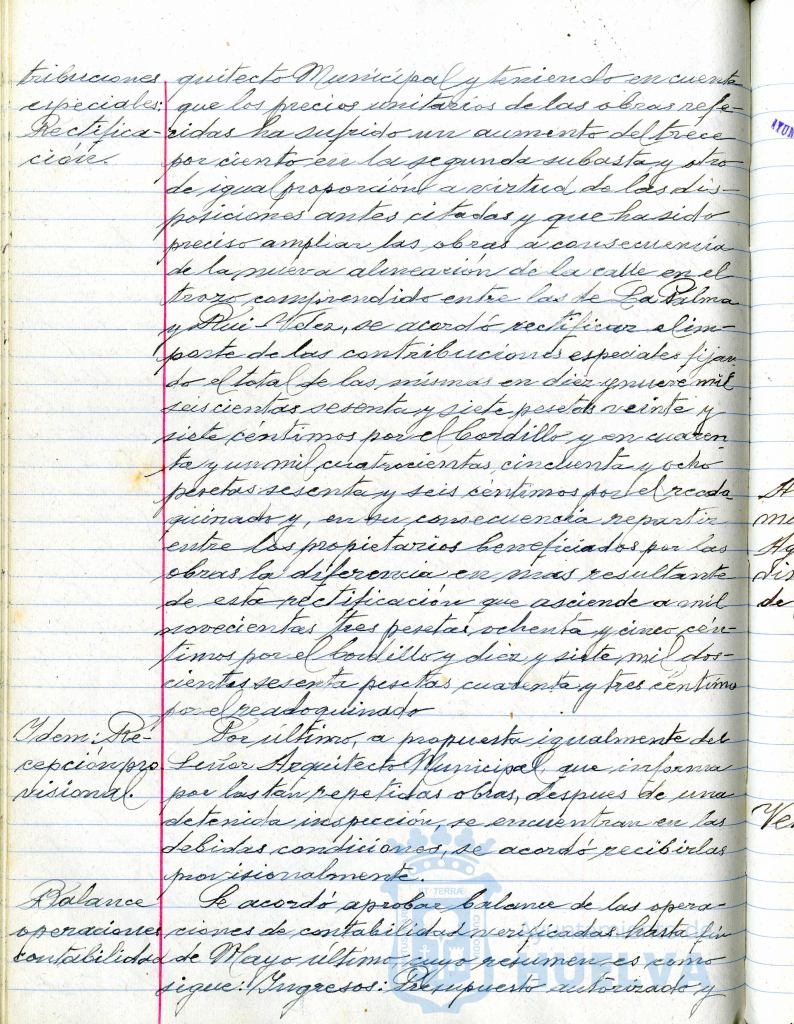 tribuciones
especiales:
Rectifica-
ción.
quitecto Municipal y teniendo en cuenta
que los precios unitarios de las obras refe-
ridas ha sufrido un aumento del trece
por ciento en la segunda subasta y otro
de igual proporción a virtud de las dis-
posiciones antes citadas y que ha sido
preciso ampliar las obras a consecuencia
de la nueva alineación de la calle en el
trozo comprendido entre las de La Palma
y Rui-Velez, se acordó rectificar el im-
porte de las contribuciones especiales fijan
do el total de las mismas en diez y nueve mil
seiscientas sesenta y siete pesetas veinte y
siete céntimos por el bordillo y en cuaren
ta y un mil cuatrocientas cincuenta y ocho
pesetas sesenta y seis céntimos por el readо-
quinado y, en su consecuencia repartir
entre los propietarios beneficiados por las
obras la diferencia en mas resultante
de esta rectificación que asciende a mil
novecientas tres pesetas ochenta y cinco cén-
timos por el bordillo y diez y siete mil dos-
cientas sesenta pesetas cuarenta y tres céntimos
por el readoquinado
Idem: Re-
cepción pro
visional.
Por último, a propuesta igualmente del
Señor Arquitecto Municipal que informa
por las tan repetidas obras, despues de una
detenida inspección, se encuentran en las
debidas condiciones, se acordó recibirlas
provisionalmente.
Balance
operaciones
contabilidad
Se acordó aprobar balance de las opera-
ciones de contabilidad verificadas hasta fin
de Mayo último, cuyo resumen es como
sigue: Ingresos: Presupuesto autorizado y
Ayuntamiento de
HUELVA